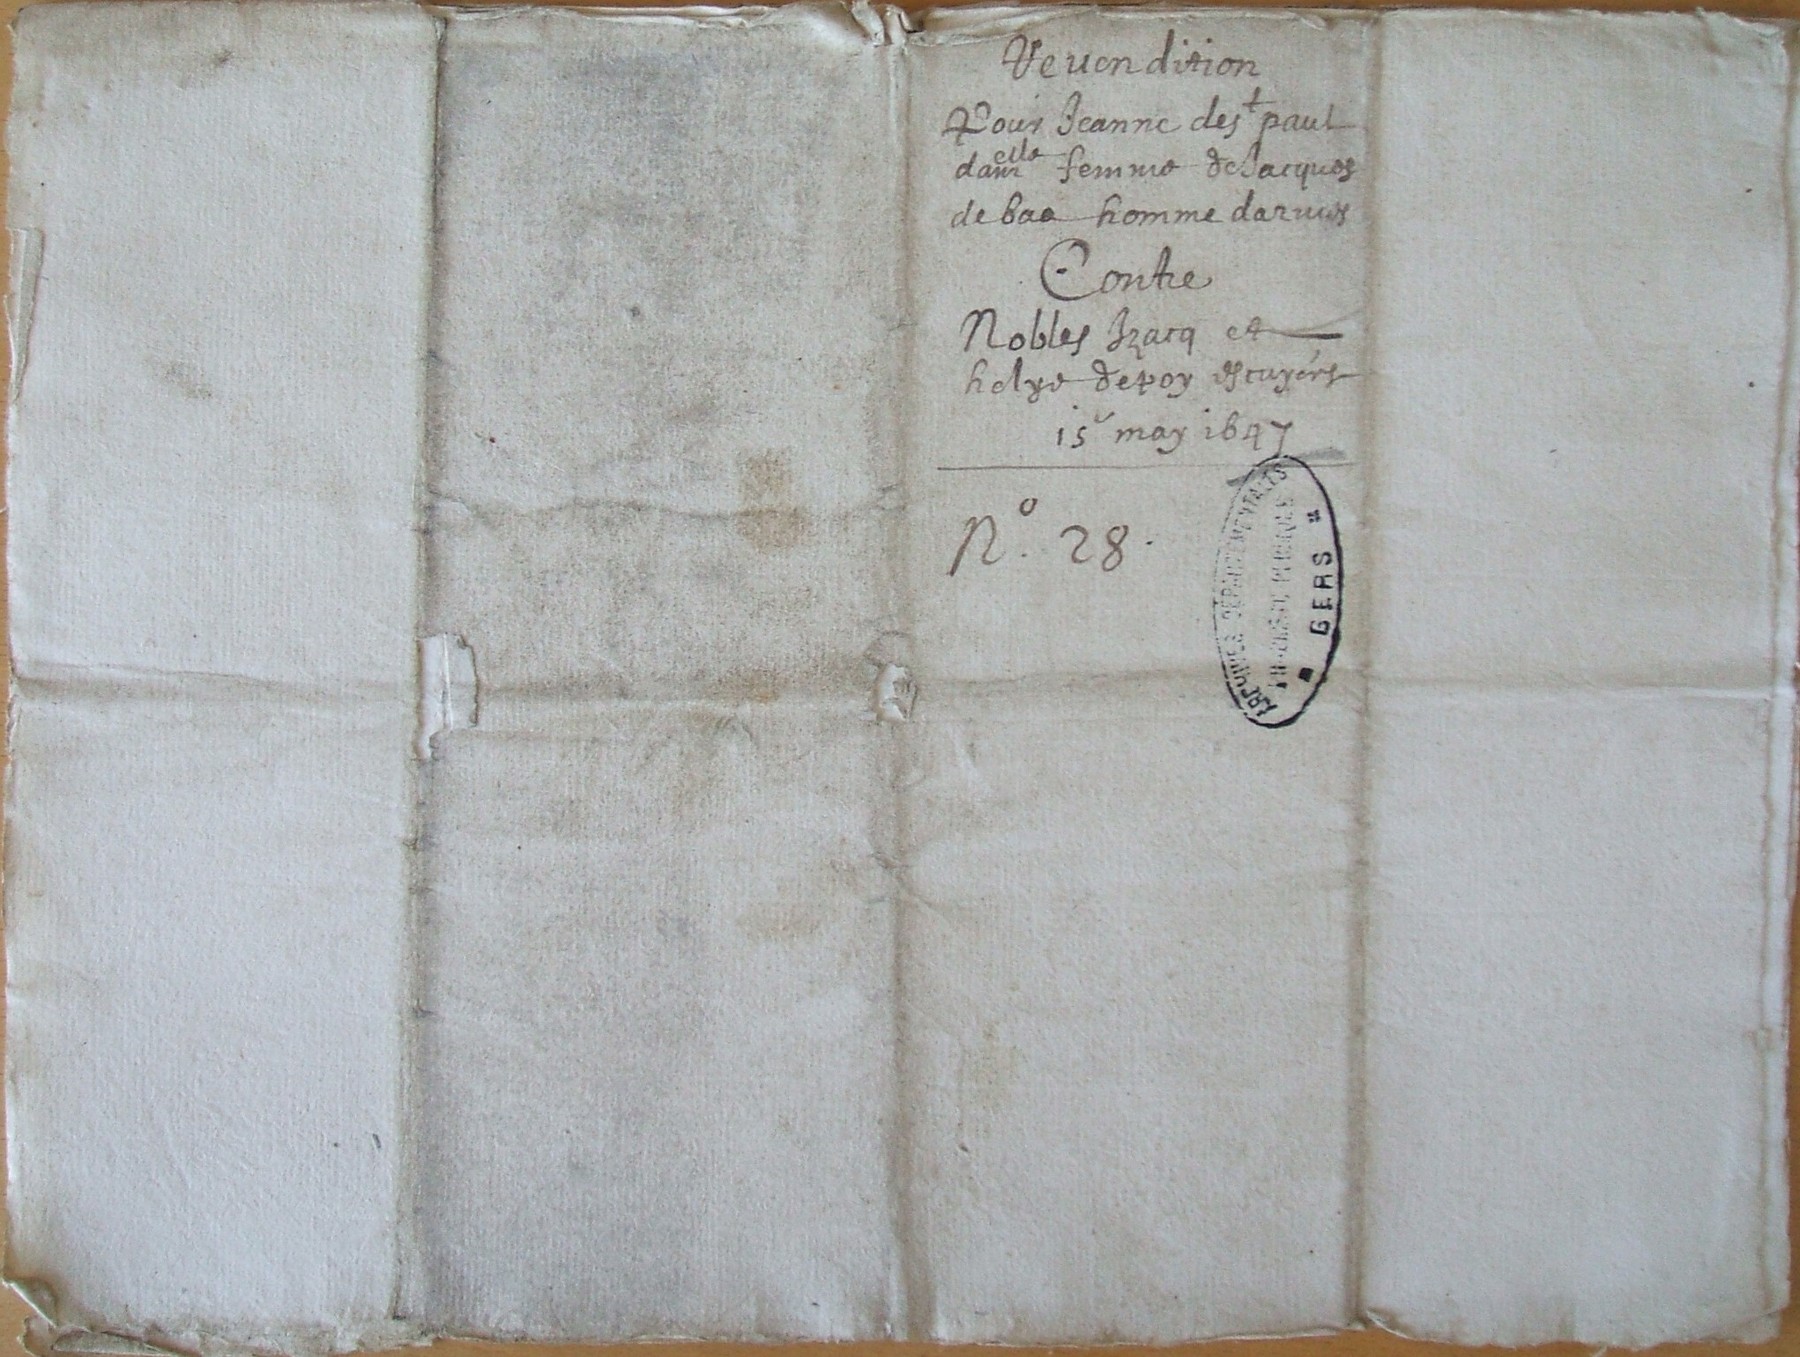 Reuendition
Pour Jeanne de st paul
dam elle femme de Jacques
de baa homme darmes
Contre
Nobles Izacq et
helye depoy escuyers
15 may 1647
No. 28.
ARCHIVES DÉPARTEMENTALES
GERS